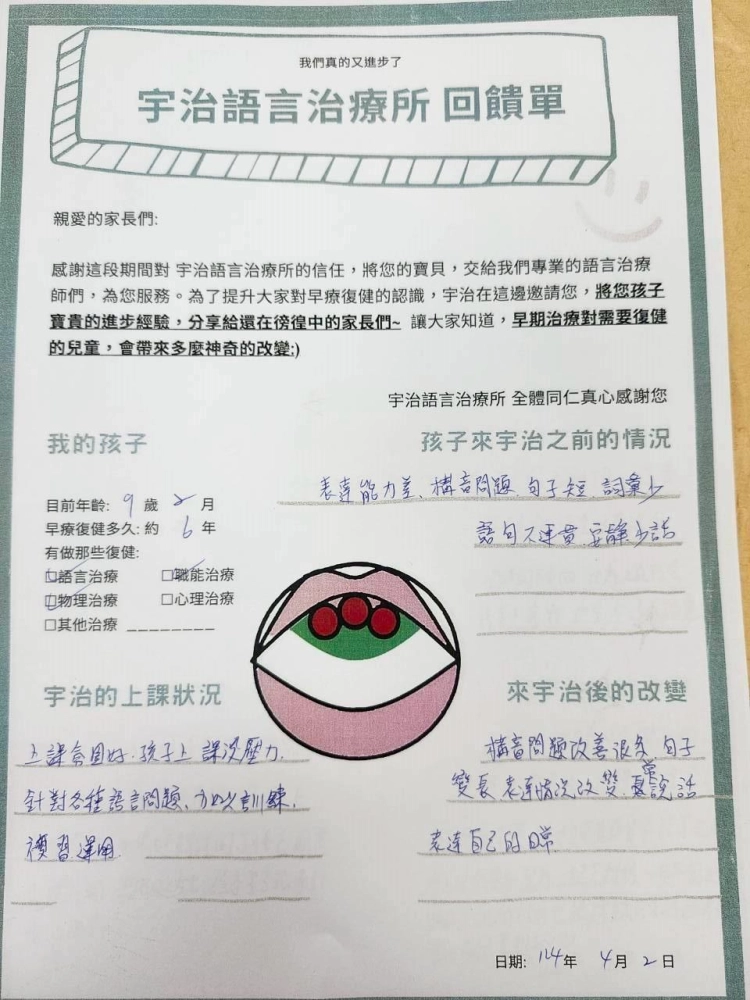 我們真的又進步了
宇治語言治療所 回饋單
親愛的家長們:
感謝這段期間對 宇治語言治療所的信任，將您的寶貝，交給我們專業的語言治療
師們，為您服務。為了提升大家對早療復健的認識，宇治在這邊邀請您，將您孩子
寶貴的進步經驗，分享給還在徬徨中的家長們~ 讓大家知道，早期治療對需要復健
的兒童，會帶來多麼神奇的改變:)
宇治語言治療所 全體同仁真心感謝您
我的孩子
目前年齡: 9 歲 2 月
早療復健多久: 約 6 年
有做那些復健:
☑語言治療 ☑職能治療
☑物理治療 □心理治療
□其他治療 ________
孩子來宇治之前的情況
表達能力差、構音問題、句子短、詞彙少
語句不連貫、安靜少話
宇治的上課狀況
上課氛圍好、孩子上課沒壓力、
針對各種語言問題、加以訓練、
複習運用
來宇治後的改變
構音問題改善很多、句子
變長、表達情況改變、愛說話
表達自己的日常
日期: 114年 4月 2日